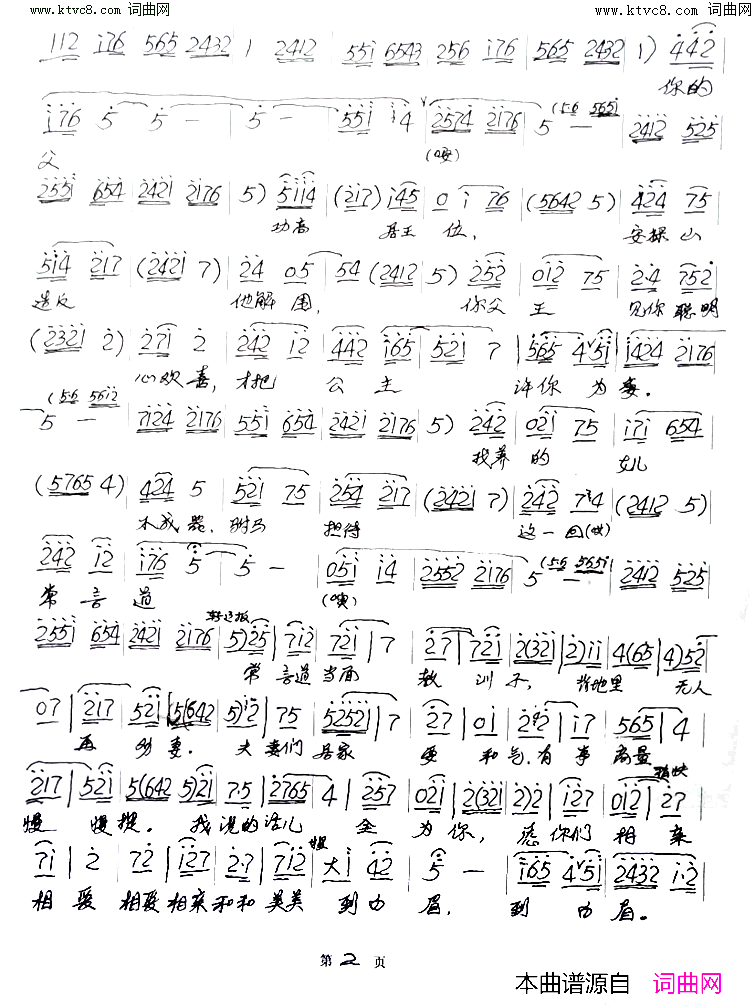 www.ktvc8.com 词曲网 www.ktvc8.com 词曲网
112 i76 565 2432 1 2412 | 55i 6543 | 256 i76 | 565 2432 | 1) 442
你的
i76 5 | 5 — | 5 — | 55i i4 | 2574 2176 | 5 — (56 565i | 2412 525
父 (哎)
255i 654 | 242i 2176 | 5) 5ii4 | (2i7) i45 | 0 i 76 | (5642 5) | 424 75
功高 居王 位,
5i4 2i7 | (242i 7) | 24 05 | 54 (2412 | 5) 252 | 0i2 75 | 2·4 752
造反 他解 围, 你父 王 见你 聪明
(232i 2) | 27i 2 | 242 i2 | 442 i65 | 52i 7 | 565 4 5i | i424 2176
心欢 喜, 才把 公 主 许你 为 妻.
5 — (56 56i2 | 7i24 2176 | 55i 654 | 242i 2176 | 5) 242 | 02i 75 | i7i 654
我养 的 女儿
(5765 4) | 424 5 | 52i 75 | 254 2i7 | (242i 7) | 242 74 | (2412 5)
不成 器, 驸马 担待 这一 回(哎)
242 i2 | i76 5 | 5 — | 05i i4 | 2552 2176 | 5 — (56 565i | 2412 525
常 言 道 (哎)
255i 654 | 242i 2176 | 5) 25 | 7i2 | 72i | 7 | 27 | 72i | 2(32i | 2) ii | 4(65 | 4) 52
常 言道 当面 教 训 子, 背地里 无人
07 | 2i7 | 52i | 5(642 | 5) i2 | 75 | 5252i | 7 | 27 | 0i | 2 2 | i7 | 565 | 4
再 劝 妻. 夫 妻们 居家 要 和 气, 有 事 商量
2i7 | 52i | 5(642 | 5) 2i | 75 | 2765 | 4 | 257 | 02i | 2(32i | 2) 2 | i27 | 0i2 | 27
慢 慢提. 我 说的 话儿 全 为 你, 愿 你们 相 亲
7i | 2 | 72 | i27 | 2·7 | 7i2 | 大 i 42 | 5 — | i65 4 5i | 2432 i·2
相 爱 相爱 相亲 和和 美美 到 白 眉, 到 白 眉.
第 2 页
本曲谱源自 词曲网